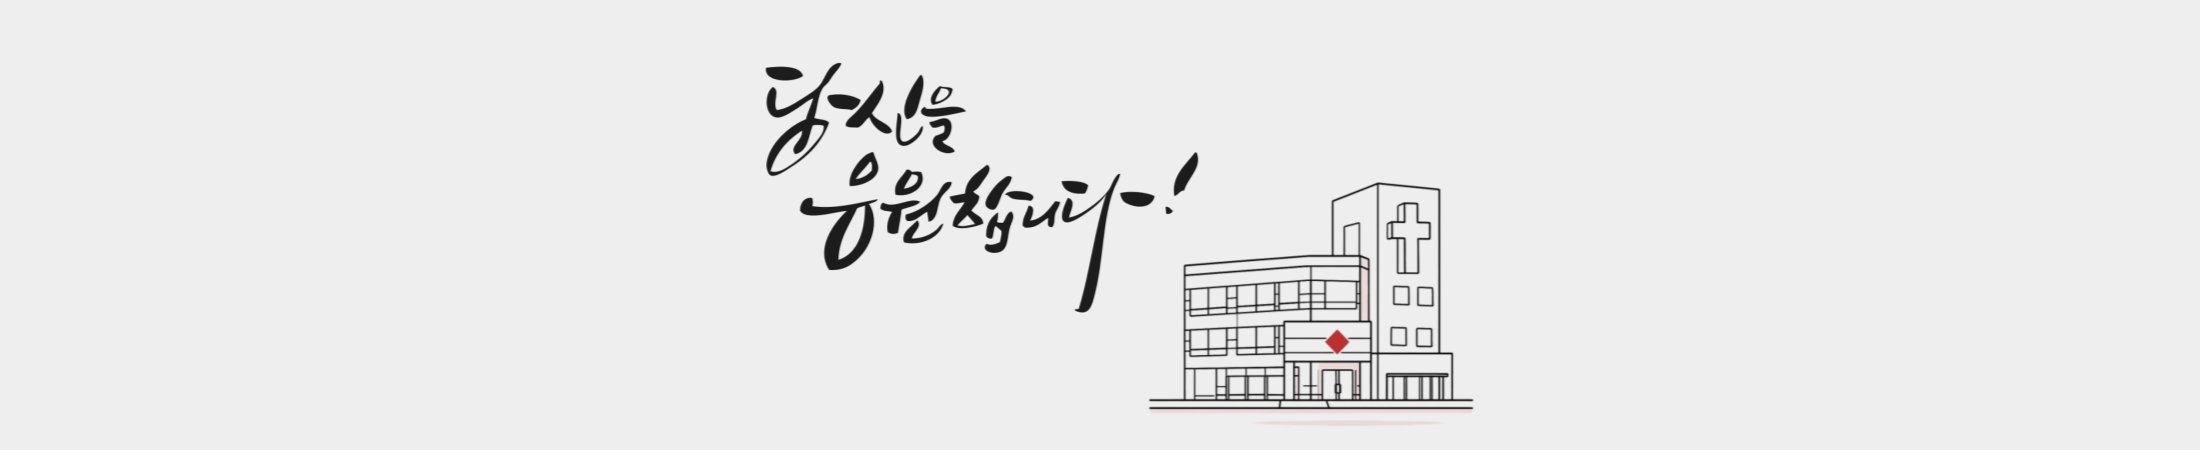 당신을
응원합니다!